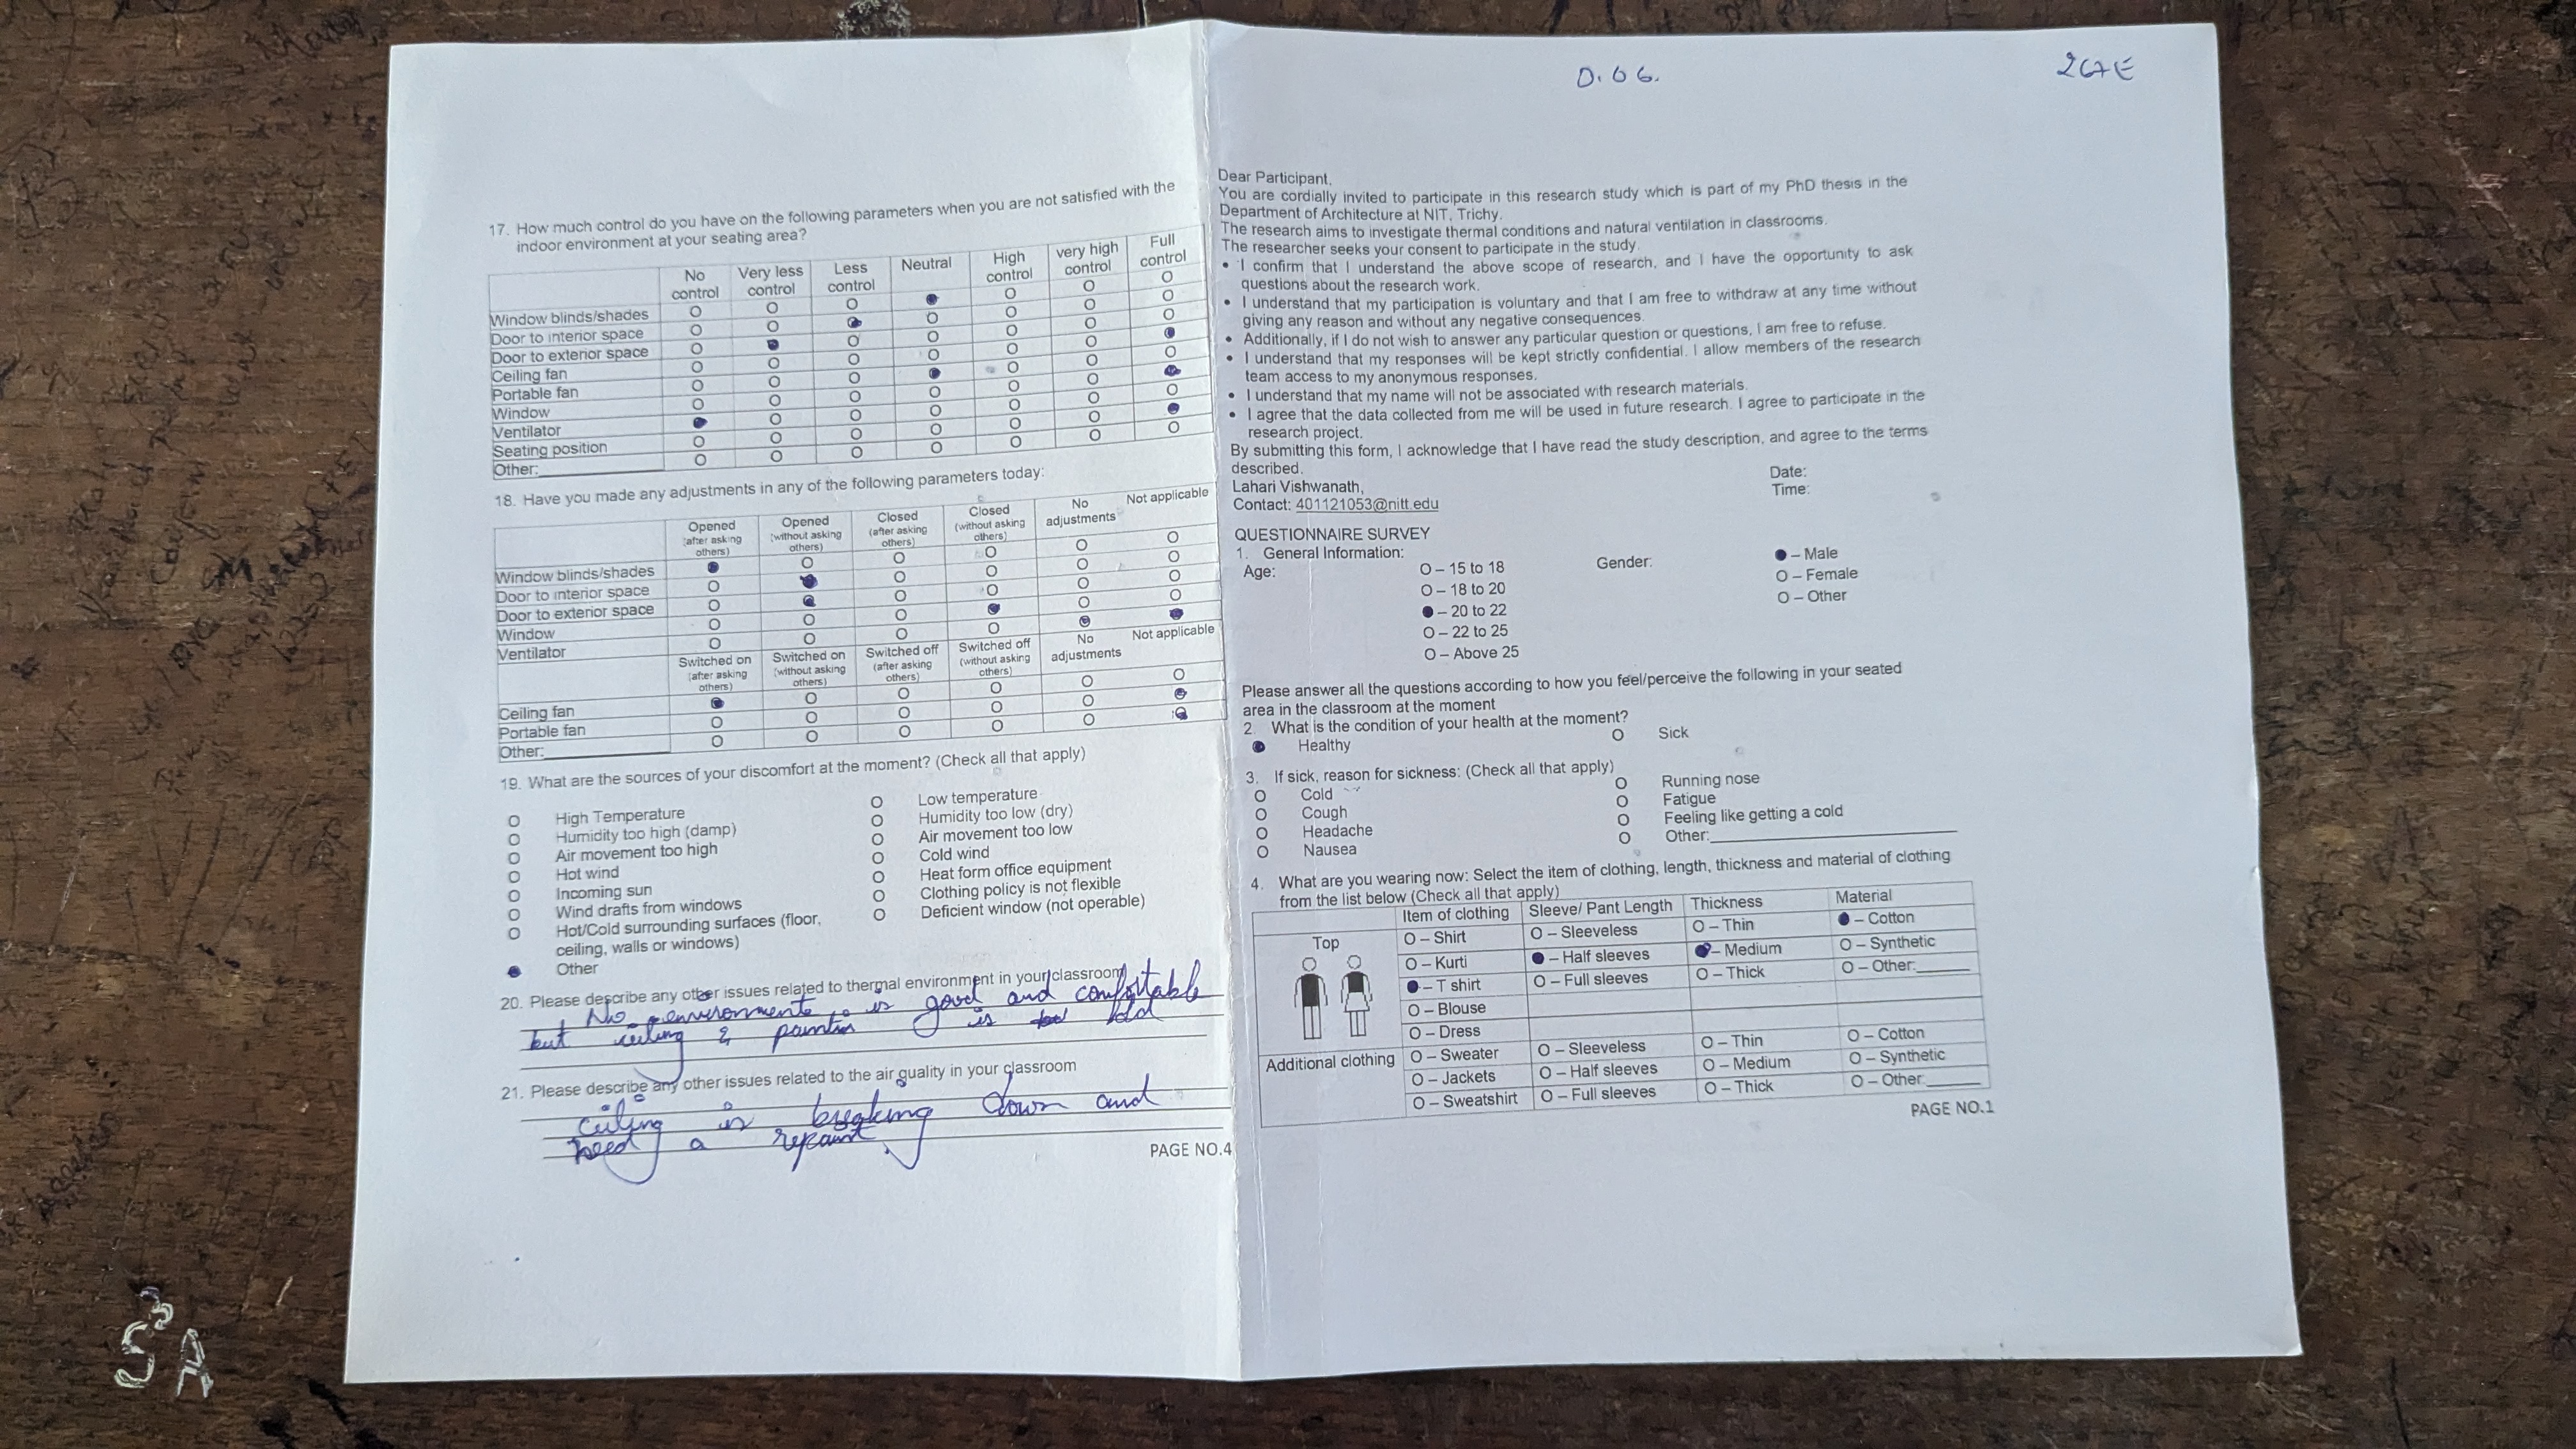 D. 06.
2G7E
17. How much control do you have on the following parameters when you are not satisfied with the
indoor environment at your seating area?
No control
Very less control
Less control
Neutral
High control
very high control
Full control
Window blinds/shades
Door to interior space
Door to exterior space
Ceiling fan
Portable fan
Window
Ventilator
Seating position
Other:
18. Have you made any adjustments in any of the following parameters today:
Opened (after asking others)
Opened (without asking others)
Closed (after asking others)
Closed (without asking others)
No adjustments
Not applicable
Window blinds/shades
Door to interior space
Door to exterior space
Window
Ventilator
Switched on (after asking others)
Switched on (without asking others)
Switched off (after asking others)
Switched off (without asking others)
No adjustments
Not applicable
Ceiling fan
Portable fan
Other:
19. What are the sources of your discomfort at the moment? (Check all that apply)
High Temperature
Humidity too high (damp)
Air movement too high
Hot wind
Incoming sun
Wind drafts from windows
Hot/Cold surrounding surfaces (floor,
ceiling, walls or windows)
Other
Low temperature
Humidity too low (dry)
Air movement too low
Cold wind
Heat form office equipment
Clothing policy is not flexible
Deficient window (not operable)
20. Please describe any other issues related to thermal environment in your classroom
No environments is good and comfortable
but ceiling & is
21. Please describe any other issues related to the air quality in your classroom
ceiling is breaking down and
need a repaint.
PAGE NO.4
Dear Participant,
You are cordially invited to participate in this research study which is part of my PhD thesis in the
Department of Architecture at NIT, Trichy.
The research aims to investigate thermal conditions and natural ventilation in classrooms.
The researcher seeks your consent to participate in the study.
• I confirm that I understand the above scope of research, and I have the opportunity to ask
questions about the research work.
• I understand that my participation is voluntary and that I am free to withdraw at any time without
giving any reason and without any negative consequences.
• Additionally, if I do not wish to answer any particular question or questions, I am free to refuse.
• I understand that my responses will be kept strictly confidential. I allow members of the research
team access to my anonymous responses.
• I understand that my name will not be associated with research materials.
• I agree that the data collected from me will be used in future research. I agree to participate in the
research project.
By submitting this form, I acknowledge that I have read the study description, and agree to the terms
described.
Date:
Lahari Vishwanath,
Time:
Contact: 401121053@nitt.edu
QUESTIONNAIRE SURVEY
1. General Information:
Age:
O – 15 to 18
O – 18 to 20
– 20 to 22
O – 22 to 25
O – Above 25
Gender:
– Male
O – Female
O – Other
Please answer all the questions according to how you feel/perceive the following in your seated
area in the classroom at the moment
2. What is the condition of your health at the moment?
Healthy
Sick
3. If sick, reason for sickness: (Check all that apply)
Cold
Cough
Headache
Nausea
Running nose
Fatigue
Feeling like getting a cold
Other:
4. What are you wearing now: Select the item of clothing, length, thickness and material of clothing
from the list below (Check all that apply)
Item of clothing
Sleeve/ Pant Length
Thickness
Material
Top
O – Shirt
O – Kurti
– T shirt
O – Blouse
O – Dress
O – Sleeveless
– Half sleeves
O – Full sleeves
O – Thin
– Medium
O – Thick
– Cotton
O – Synthetic
O – Other:
Additional clothing
O – Sweater
O – Jackets
O – Sweatshirt
O – Sleeveless
O – Half sleeves
O – Full sleeves
O – Thin
O – Medium
O – Thick
O – Cotton
O – Synthetic
O – Other:
PAGE NO.1
SA